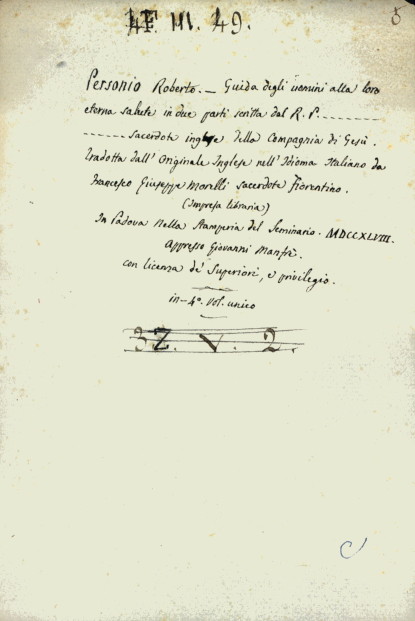 4F. III. 49.
Personio Roberto. — Guida degli uomini alla loro
eterna salute in due parti scritta dal R. P. --------
------ sacerdote inglese della Compagnia di Gesù.
tradotta dall' Originale Inglese nell' Idioma Italiano da
Francesco Giuseppe Morelli sacerdote Fiorentino.
(Impresa libraria)
In Padova nella Stamperia del Seminario. MDCCXLVIII.
Appresso Giovanni Manfrè.
con licenza de' Superiori, e privilegio.
in-4°. vol. unico
3Z. V. 2.